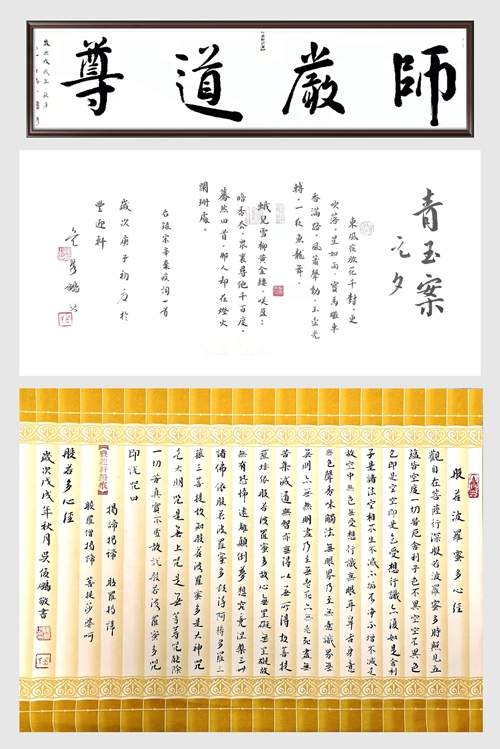 師嚴道尊
青玉案
元夕
東風夜放花千封，更
吹落，星如雨，寶馬雕車
香滿路，鳳簫聲動，玉壺光
轉，一夜魚龍舞。
蛾兒雪柳黃金縷，笑盈盈
暗香去，眾裏尋他千百度，
驀然回首，那人卻在燈火
闌珊處。
右錄宋辛棄疾詞一首
歲次庚子初夏於
豐迎軒
吳俊鵬書
般若波羅蜜多心經
觀自在菩薩行深般若波羅蜜多時照見五
蘊皆空度一切苦厄舍利子色不異空空不異色
色即是空空即是色受想行識亦復如是舍利
子是諸法空相不生不滅不垢不淨不增不減是
故空中無色無受想行識無眼耳鼻舌身意
無色聲香味觸法無眼界乃至無意識界無
無明亦無無明盡乃至無老死亦無老死盡無
苦集滅道無智亦無得以無所得故菩提
薩埵依般若波羅蜜多故心無罣礙無罣礙故
無有恐怖遠離顛倒夢想究竟涅槃三世
諸佛依般若波羅蜜多故得阿耨多羅三
藐三菩提故知般若波羅蜜多是大神咒
是大明咒是無上咒是無等等咒能除
一切苦真實不虛故說般若波羅蜜多咒
即說咒曰
揭諦揭諦 般羅揭諦
般羅僧揭諦 菩提莎婆訶
般若多心經
歲次戊戌年秋月吳俊鵬敬書